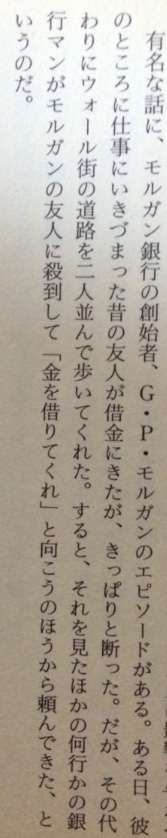 有名な話に、モルガン銀行の創始者、G・P・モルガンのエピソードがある。ある日、彼
のところに仕事にいきづまった昔の友人が借金にきたが、きっぱりと断った。だが、その代
わりにウォール街の道路を二人並んで歩いてくれた。すると、それを見たほかの何行かの銀
行マンがモルガンの友人に殺到して「金を借りてくれ」と向こうのほうから頼んできた、と
いうのだ。